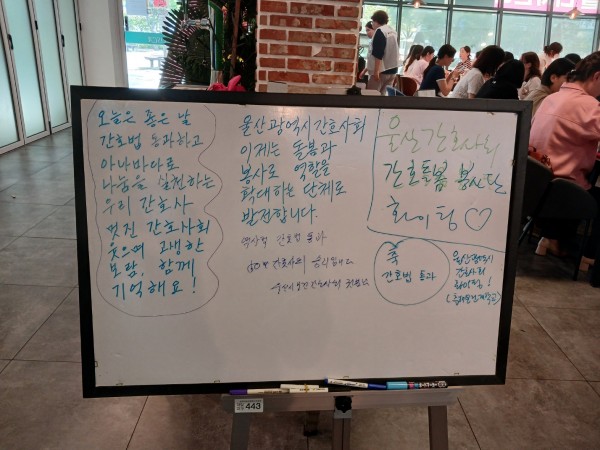 오늘은 좋은 날
간호법 통과하고
아나바다로
나눔을 실천하는
우리 간호사
멋진 간호사회
웃으며 고생한
보람, 함께
기억해요!
울산광역시간호사회
이제는 돌봄과
봉사로 역할을
확대하는 단계로
발전합니다.
역사적 간호법 통과
간호사의 승리입니다
울산간호사회
간호돌봄 봉사단
화이팅 ♡
축
간호법 통과
울산광역시
간호사회
화이팅!
443